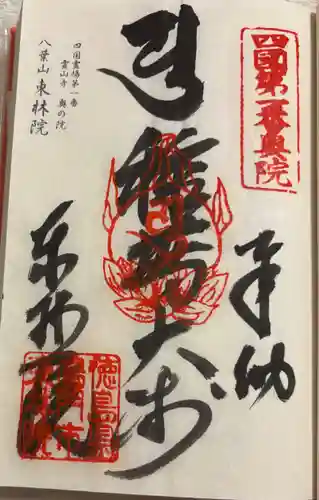 四国第一番奥院
奉納
種蒔大師
四国霊場第一番
霊山寺 奥の院
八葉山東林院
東林院
徳島県